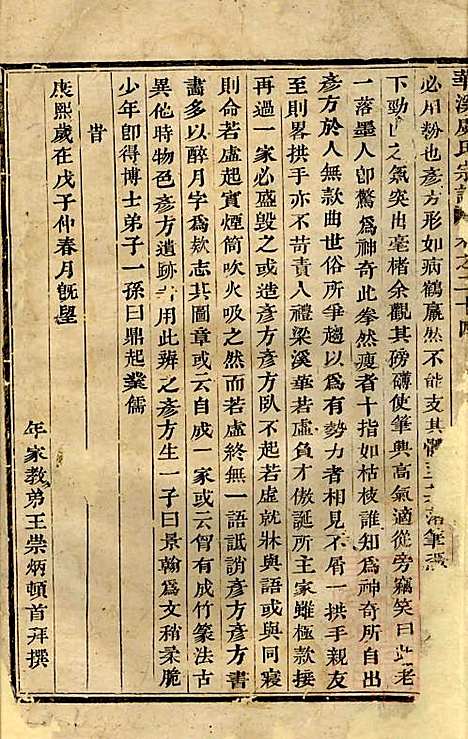 華溪盧氏宗譜 卷之二十四
必用粉也彥方形如病鶴羸然不能支其體至於落筆
下勁
之氣突出毫楮余觀其磅礡使筆興高氣適從旁竊笑曰此老
一落墨人卽驚爲神奇此拳然瘦者十指如枯枝誰知爲神奇所自出
彥方於人無款曲世俗所爭趨以爲有勢力者相見不屑一拱手親友
至則畧拱手亦不苛責人禮梁溪華若虛負才傲誕所主家雖極款接
再過一家必盛毀之時若虛與彥方臥不起若虛就牀與語或與同寢
則命若虛起賓煙筒吹火吸之然而若虛終無一語詆誚彥方彥方書
畵多以醉月字爲欵志其圖章或云自成一家或云胷有成竹篆法古
異他時物色彥方遺跡者用此辨之彥方生一子曰景翰爲文稍柔脆
少年卽得博士弟子一孫曰鼎起業儒
旹
康熙歲在戊子仲春月旣望
年家教弟王崇炳頓首拜撰